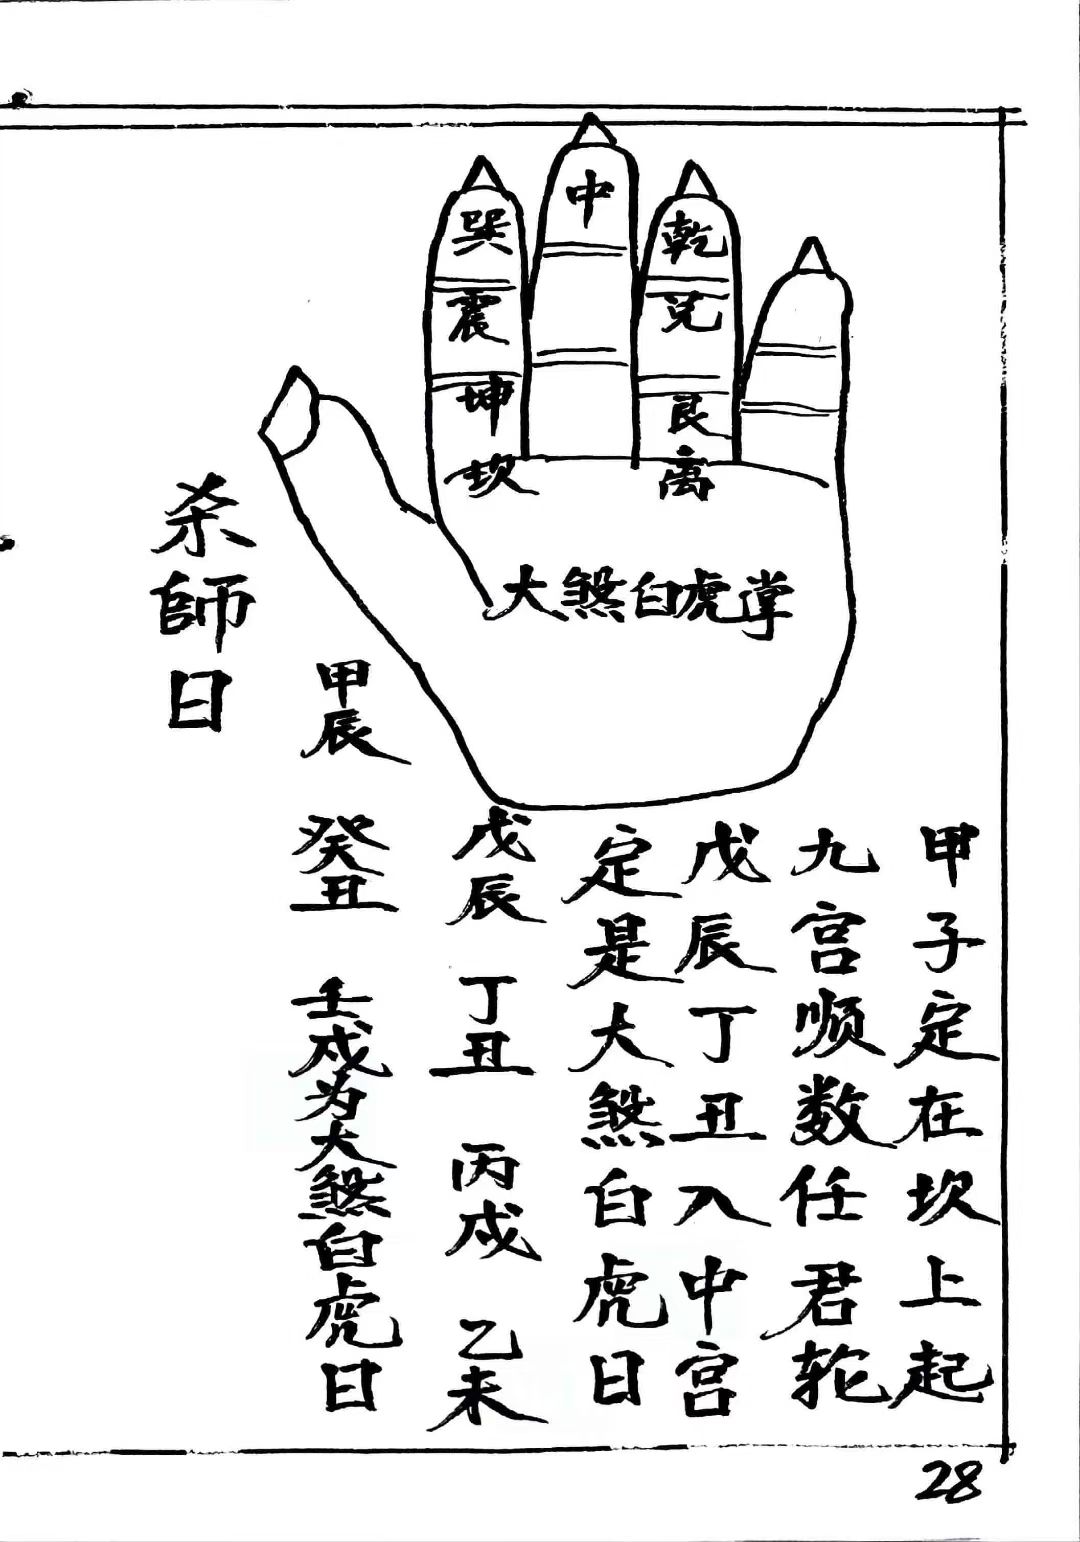 中
巽
乾
震
兑
坤
艮
坎
离
大煞白虎掌
甲子定在坎上起
九宫顺数任君轮
戊辰丁丑入中宫
定是大煞白虎日
戊辰 丁丑 丙戌 乙未
甲辰 癸丑 壬戌为大煞白虎日
杀師日
28